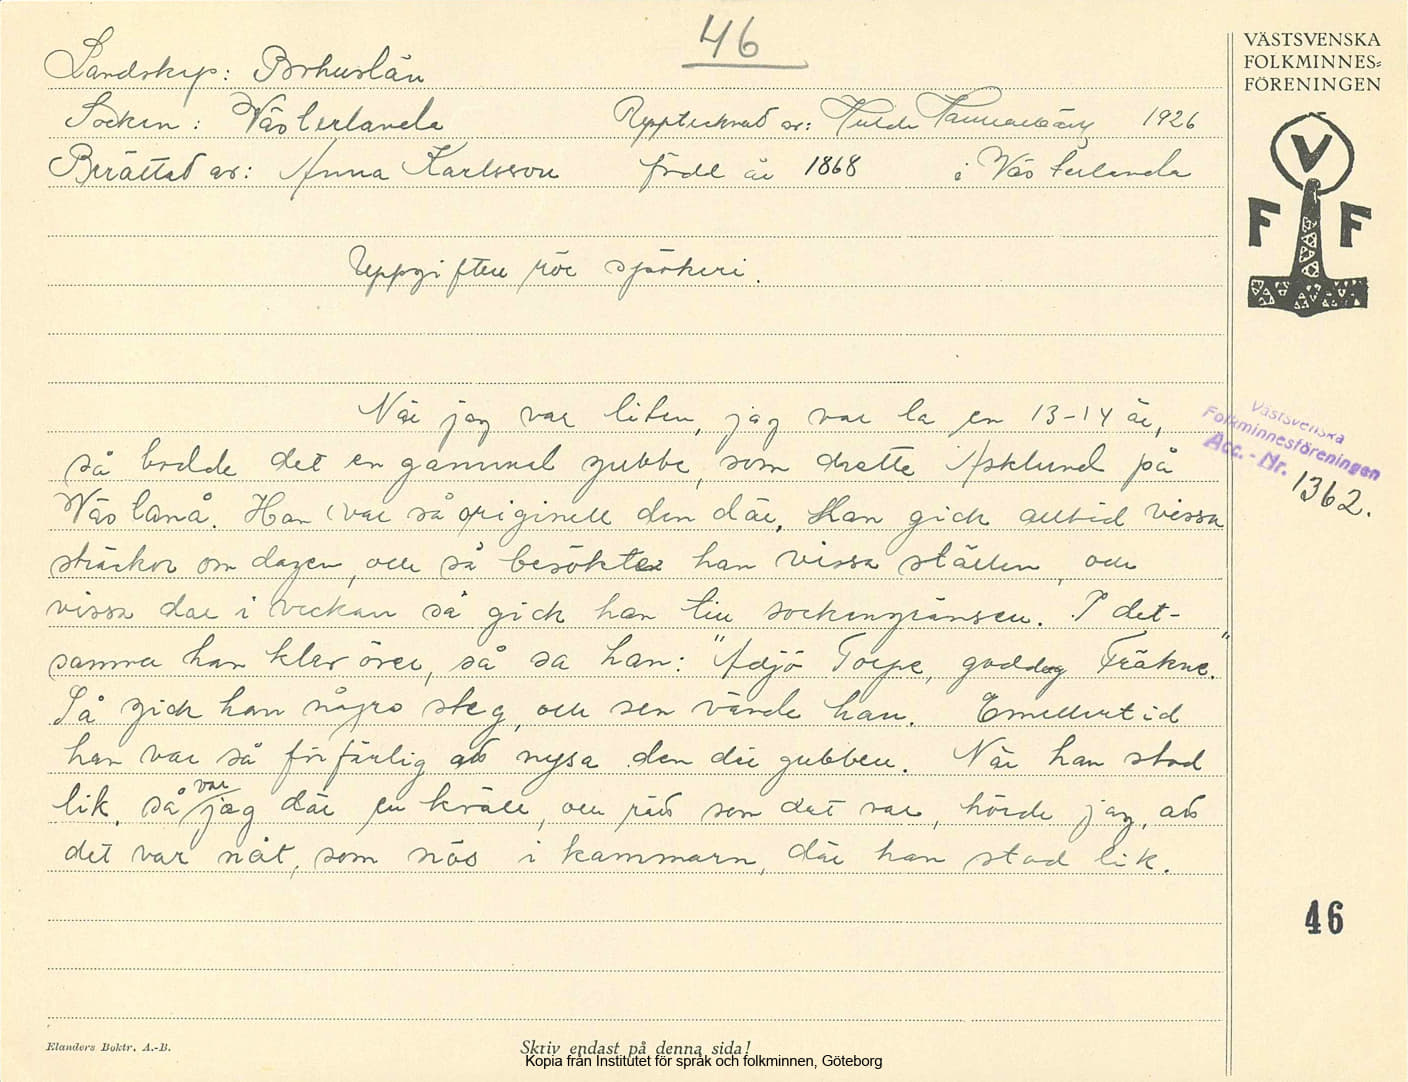 46
VÄSTSVENSKA
FOLKMINNES=
FÖRENINGEN
V
F F
Landskap: Bohuslän
Socken: Västerlanda Upptecknat av: Hulda Hammarbäck 1926
Berättat av: Anna Karlsson född år 1868 i Västerlanda
Uppgiften rör spökeri.
När jag var liten, jag var la en 13-14 år,
så bodde det en gammal gubbe, som hette Asklund på
Västanå. Han var så originell den där. Han gick alltid vissa
sträckor om dagen, och så besökte han vissa ställen, och
vissa dar i veckan så gick han till sockengränsen. I det-
samma han klev över, så sa han: "Adjö Torpe, goddag Fräkne."
Så gick han någro steg, och sen vände han. Emellertid
han var så förfärlig att nysa den där gubben. När han stod
lik, så var jag där en kväll, och rätt som det var, hörde jag, att
det var nåt, som nös i kammarn, där han stod lik.
Västsvenska
Folkminnesföreningen
Acc. - Nr. 1362.
46
Elanders Boktr. A.-B.
Skriv endast på denna sida!
Kopia från Institutet för språk och folkminnen, Göteborg